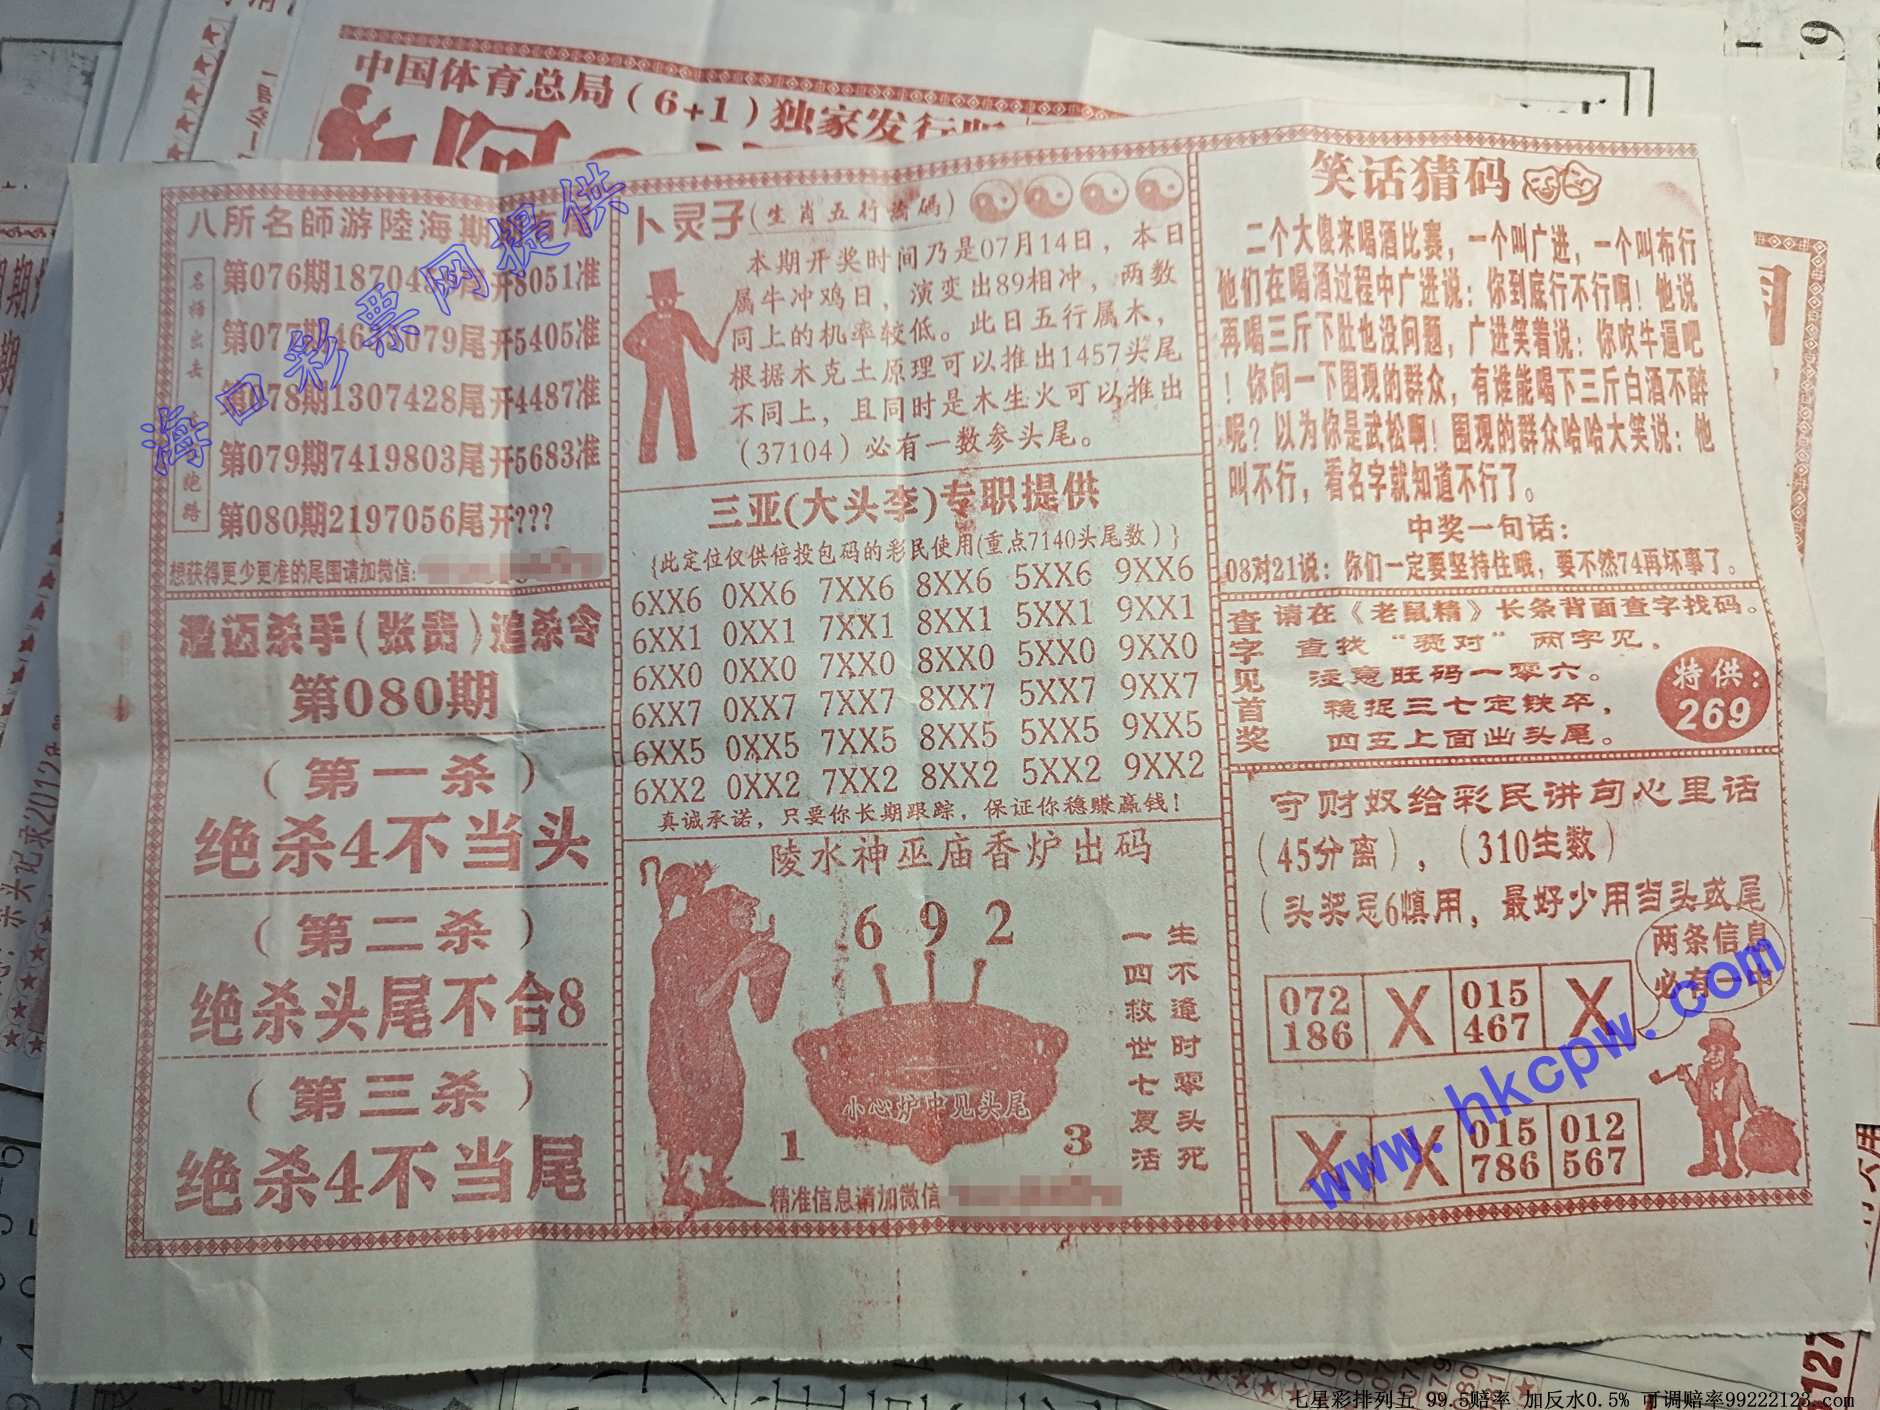 中国体育总局(6+1)独家发行
八所名師游陸海期
名师出去
绝路
第076期18704
尾开8051准
第077期46
079尾开5405准
第078期1307428尾开4487准
第079期7419803尾开5683准
第080期2197056尾开???
想获得更少更准的尾围请加微信:
澄迈杀手(张贵)追杀令
第080期
(第一杀)
绝杀4不当头
(第二杀)
绝杀头尾不合8
(第三杀)
绝杀4不当尾
卜灵子(生肖五行 碼)
本期开奖时间乃是07月14日，本日
属牛冲鸡日，演变出89相冲，两数
同上的机率较低。此日五行属木，
根据木克土原理可以推出1457头尾
不同上，且同时是木生火可以推出
(37104)必有一数参头尾。
三亚(大头李)专职提供
{此定位仅供倍投包码的彩民使用(重点7140头尾数)}
6XX6 0XX6 7XX6 8XX6 5XX6 9XX6
6XX1 0XX1 7XX1 8XX1 5XX1 9XX1
6XX0 0XX0 7XX0 8XX0 5XX0 9XX0
6XX7 0XX7 7XX7 8XX7 5XX7 9XX7
6XX5 0XX5 7XX5 8XX5 5XX5 9XX5
6XX2 0XX2 7XX2 8XX2 5XX2 9XX2
真诚承诺，只要你长期跟踪，保证你稳赚赢钱!
陵水神巫庙香炉出码
692
生不逢时零头死
一四救世七夏活
小心炉中见头尾
1
3
精准信息请加微信
笑话猜码
二个大傻来喝酒比赛，一个叫广进，一个叫布行
他们在喝酒过程中广进说：你到底行不行啊！他说
再喝三斤下肚也没问题，广进笑着说：你吹牛逼吧
！你问一下围现的群众，有谁能喝下三斤白酒不醉
呢？以为你是武松啊！围现的群众哈哈大笑说：他
叫不行，看名字就知道不行了。
中奖一句话：
03对21说：你们一定要坚持住哦，要不然74再坏事了。
查字见首奖
请在《老鼠精》长条背面查字找码。
查找“ 对”两字见，
注意旺码一零六。
稳捉三七定铁卒，
四五上面出头尾。
特供：
269
守财奴给彩民讲句心里话
(45分离)，(310生数)
(头奖忌6慎用，最好少用当头或尾)
两条信息
必有一中
072 X 015 X
186 467
X X 015 012
786 567
海口彩票网提供
www.hkcpw.com
七星彩排列五 99.5赔率 加反水0.5% 可调赔率99222123.com